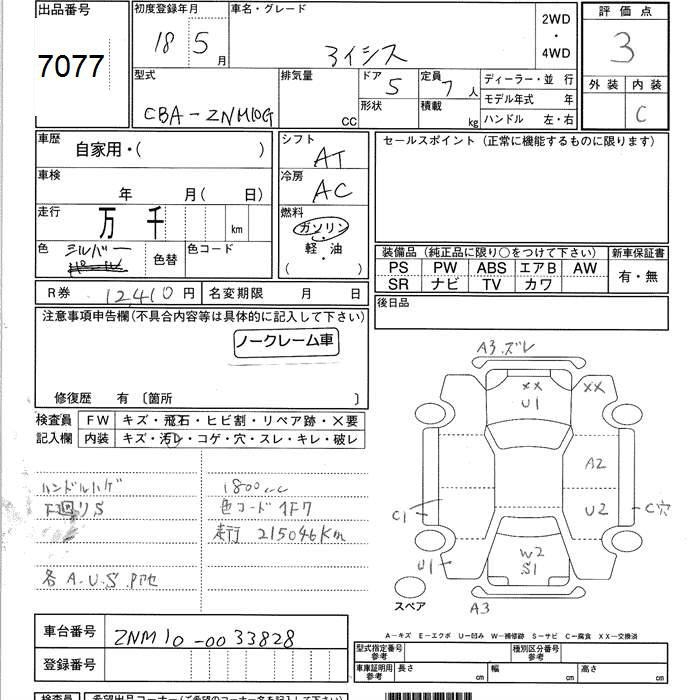 出品番号
7077
初度登録年月
18 5 月
車名・グレード
アイシス
2WD
・
4WD
評価点
3
外装 内装
C
型式
CBA-ZNM10G
排気量
CC
ドア 5
形状
定員 7 人
積載 kg
ディーラー・並 行
モデル年式 年
ハンドル 左・右
車歴
自家用・( )
車検
年 月( 日)
走行
万 千 km
色
シルバー
色替
色コード
シフト
AT
冷房
AC
燃料
ガソリン
・
軽油
・
( )
セールスポイント(正常に機能するものに限ります)
装備品(純正品に限り○をつけて下さい)
新車保証書
PS PW ABS エアB AW
SR ナビ TV カワ
有・無
後日品
R券 12,410 円
名変期限 月 日
注意事項申告欄(不具合内容等は具体的に記入して下さい)
ノークレーム車
修復歴 有 〔箇所 〕
検査員
記入欄
FW キズ・飛石・ヒビ割・リペア跡・×要
内装 キズ・汚レ・コゲ・穴・スレ・キレ・破レ
ハンドルハゲ
下廻りS
各A.U.S.
1800cc
色コード 1F7
走行 215046Km
A3.ズレ
XX XX
U1
A2
U2
C穴
C1
U1
W2
S1
A3
スペア
A-キズ E-エクボ U-凹み W-補修跡 S-サビ C-腐食 XX-交換済
車台番号
ZNM10-0033828
登録番号
型式指定番号
参考
種別区分番号
参考
車庫証明用
参考
長さ cm 幅 cm 高さ cm
検査員
希望出品コーナー(ご希望のコーナー名を記入して下さい)